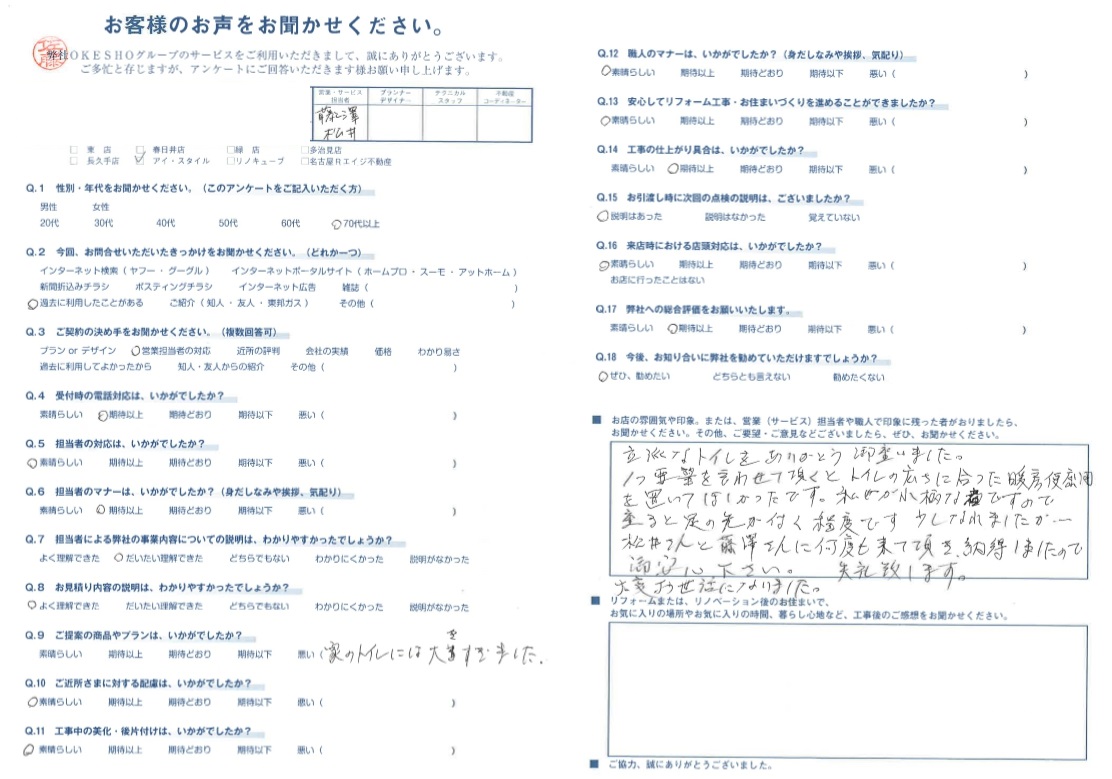 お客様のお声をお聞かせください。
弊社OKESHOグループのサービスをご利用いただきまして、誠にありがとうございます。
ご多忙と存じますが、アンケートにご回答いただきます様お願い申し上げます。
営業・サービス担当者 プランナーデザイナー テクニカルスタッフ 不動産コーディネーター
藤澤
松井
□ 東 店 □ 春日井店 □緑 店 □多治見店
□ 長久手店 ☑ アイ・スタイル □リノキューブ □名古屋Rエイジ不動産
Q.1 性別・年代をお聞かせください。（このアンケートをご記入いただく方）
男性 女性
20代 30代 40代 50代 60代 ○70代以上
Q.2 今回、お問合せいただいたきっかけをお聞かせください。（どれか一つ）
インターネット検索（ ヤフー ・ グーグル ） インターネットポータルサイト（ ホームプロ ・ スーモ ・ アットホーム ）
新聞折込みチラシ ポスティングチラシ インターネット広告 雑誌（ ）
○過去に利用したことがある ご紹介（ 知人 ・ 友人 ・ 東邦ガス ） その他（ ）
Q.3 ご契約の決め手をお聞かせください。（複数回答可）
プラン or デザイン ○営業担当者の対応 近所の評判 会社の実績 価格 わかり易さ
過去に利用してよかったから 知人・友人からの紹介 その他（ ）
Q.4 受付時の電話対応は、いかがでしたか？
素晴らしい ○期待以上 期待どおり 期待以下 悪い（ ）
Q.5 担当者の対応は、いかがでしたか？
○素晴らしい 期待以上 期待どおり 期待以下 悪い（ ）
Q.6 担当者のマナーは、いかがでしたか？（身だしなみや挨拶、気配り）
素晴らしい ○期待以上 期待どおり 期待以下 悪い（ ）
Q.7 担当者による弊社の事業内容についての説明は、わかりやすかったでしょうか？
よく理解できた ○だいたい理解できた どちらでもない わかりにくかった 説明がなかった
Q.8 お見積り内容の説明は、わかりやすかったでしょうか？
○よく理解できた だいたい理解できた どちらでもない わかりにくかった 説明がなかった
Q.9 ご提案の商品やプランは、いかがでしたか？
素晴らしい 期待以上 期待どおり 期待以下 悪い（家のトイレには大きすぎました.
Q.10 ご近所さまに対する配慮は、いかがでしたか？
○素晴らしい 期待以上 期待どおり 期待以下 悪い（ ）
Q.11 工事中の美化・後片付けは、いかがでしたか？
○素晴らしい 期待以上 期待どおり 期待以下 悪い（ ）
Q.12 職人のマナーは、いかがでしたか？（身だしなみや挨拶、気配り）
○素晴らしい 期待以上 期待どおり 期待以下 悪い（ ）
Q.13 安心してリフォーム工事・お住まいづくりを進めることができましたか？
○素晴らしい 期待以上 期待どおり 期待以下 悪い（ ）
Q.14 工事の仕上がり具合は、いかがでしたか？
素晴らしい ○期待以上 期待どおり 期待以下 悪い（ ）
Q.15 お引渡し時に次回の点検の説明は、ございましたか？
○説明はあった 説明はなかった 覚えていない
Q.16 来店時における店頭対応は、いかがでしたか？
○素晴らしい 期待以上 期待どおり 期待以下 悪い（ ）
お店に行ったことはない
Q.17 弊社への総合評価をお願いいたします。
素晴らしい ○期待以上 期待どおり 期待以下 悪い（ ）
Q.18 今後、お知り合いに弊社を勧めていただけますでしょうか？
○ぜひ、勧めたい どちらとも言えない 勧めたくない
■ お店の雰囲気や印象。または、営業（サービス）担当者や職人で印象に残った者がおりましたら、
お聞かせください。その他、ご要望・ご意見などございましたら、ぜひ、お聞かせください。
立派なトイレをありがとう御座いました。
1つ要望を言わせて頂くとトイレの広さに合った暖房便座用
を置いてほしかったです。私せが小柄なですので
座ると足の先が付く程度です 少しなれましたが…
松井さんと藤澤さんに何度も来て頂き、納得しましたので
御安心下さい。 失礼致します。
大変お世話になりました。
■ リフォームまたは、リノベーション後のお住まいで、
お気に入りの場所やお気に入りの時間、暮らし心地など、工事後のご感想をお聞かせください。
■ ご協力、誠にありがとうございました。